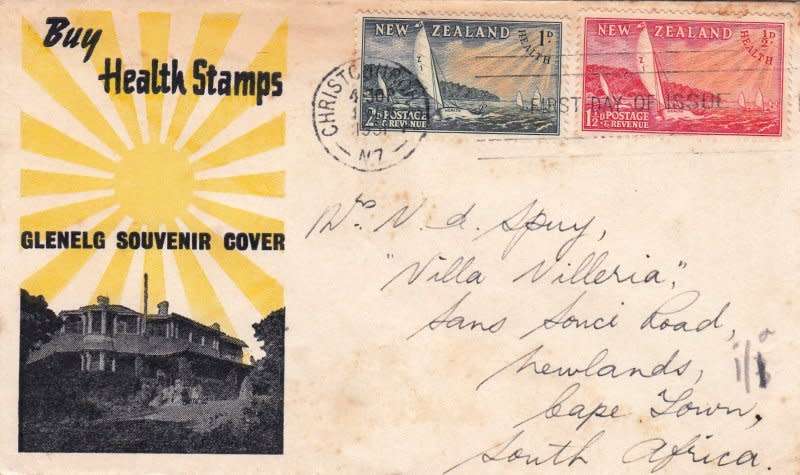 Buy
Health Stamps
GLENELG SOUVENIR COVER
NEW ZEALAND 1D
HEALTH
2D POSTAGE
& REVENUE
NEW ZEALAND ½D
HEALTH
1½D POSTAGE
& REVENUE
CHRISTCHURCH
1951
NZ
FIRST DAY OF ISSUE
V. d. Spuy,
"Villa Villeria",
Sans Souci Road,
Newlands,
Cape Town,
South Africa.